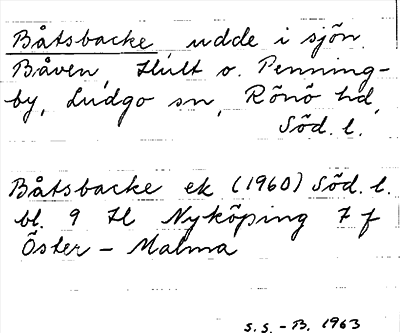 Båtsbacke, udde i sjön
Båven, Hult o. Penning-
by, Ludgo sn, Rönö hd,
Söd. l.
Båtsbacke ek (1960) Söd. l.
bl. 9 H Nyköping 7 f
Öster - Malma
S.S. - B. 1963